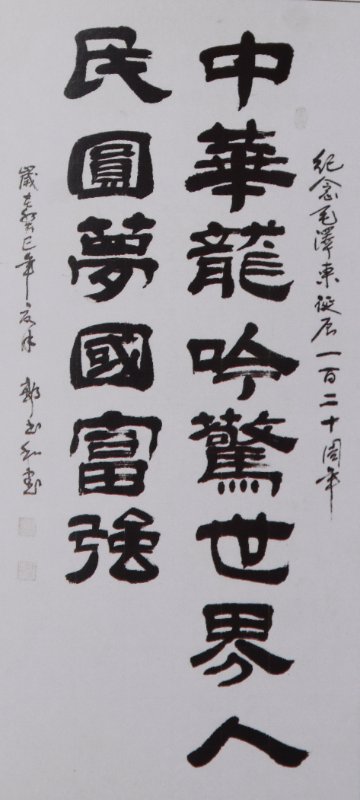 紀念毛澤東誕辰一百二十周年
中華龍吟驚世界人
民圓夢國富強
歲在癸巳年
書